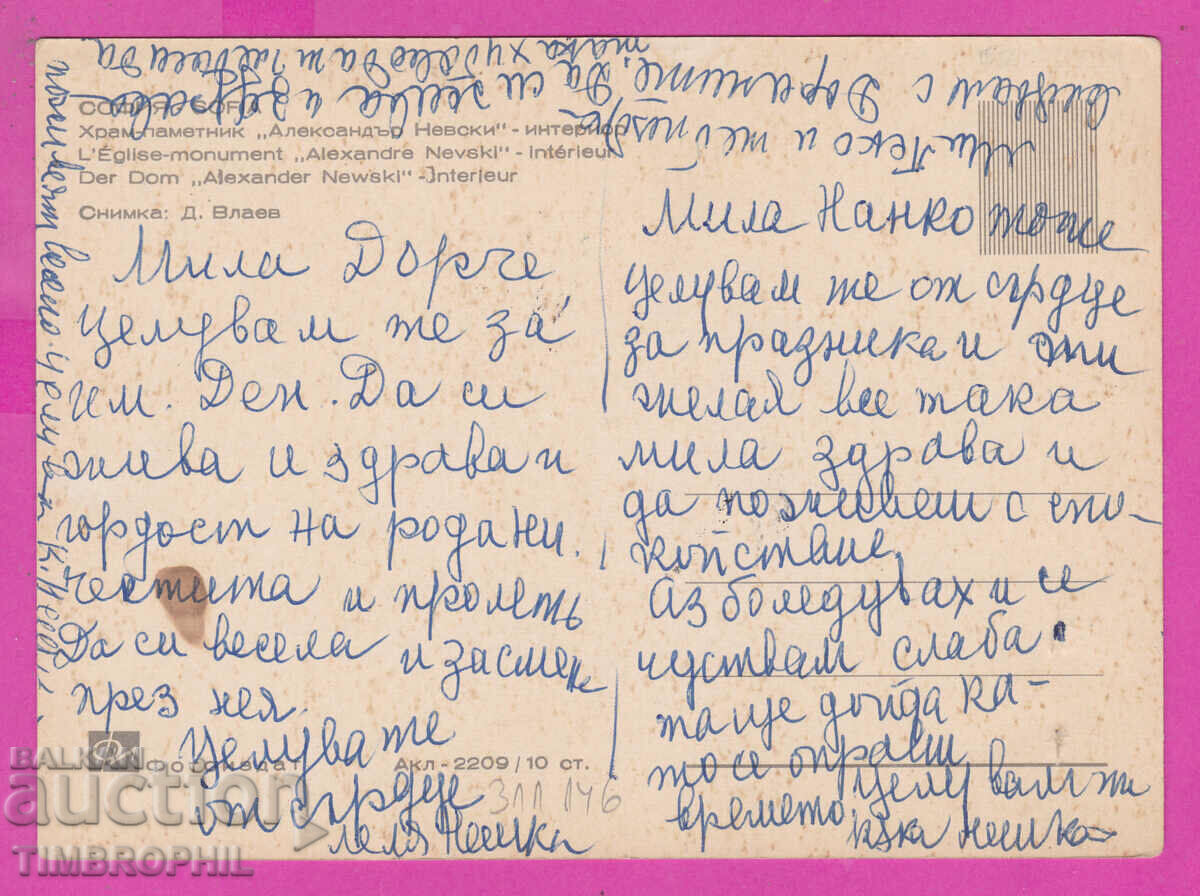 СОФИЯ. SOFIA
Храм-паметник „Александър Невски" - интериор
L'Église-monument „Alexandre Nevski" - intérieur
Der Dom „Alexander Newski" - Interieur
Снимка: Д. Влаев
Мила Дорче,
целувам те за
им. Ден. Да си
жива и здрава и
гордост на родани.
Честита и пролеть
Да си весела и засмена
през нея.
Целува те
от сърдце
леля Нешка
Мила Нанко тоже
целувам те от сърдце
за празника и ти
желая все така
мила здрава и
да поживееш с спо-
койствие,
Аз боледувах и се
чуствам слаба
та ще дойда ка-
то се оправи
времето.
целувам ти
кака Нешка
Да си жива и здрава
така хубаво да ти
Фотоиздат
Акл - 2209/10 ст.
311146
BALKAN
auction
TIMBROPHIL